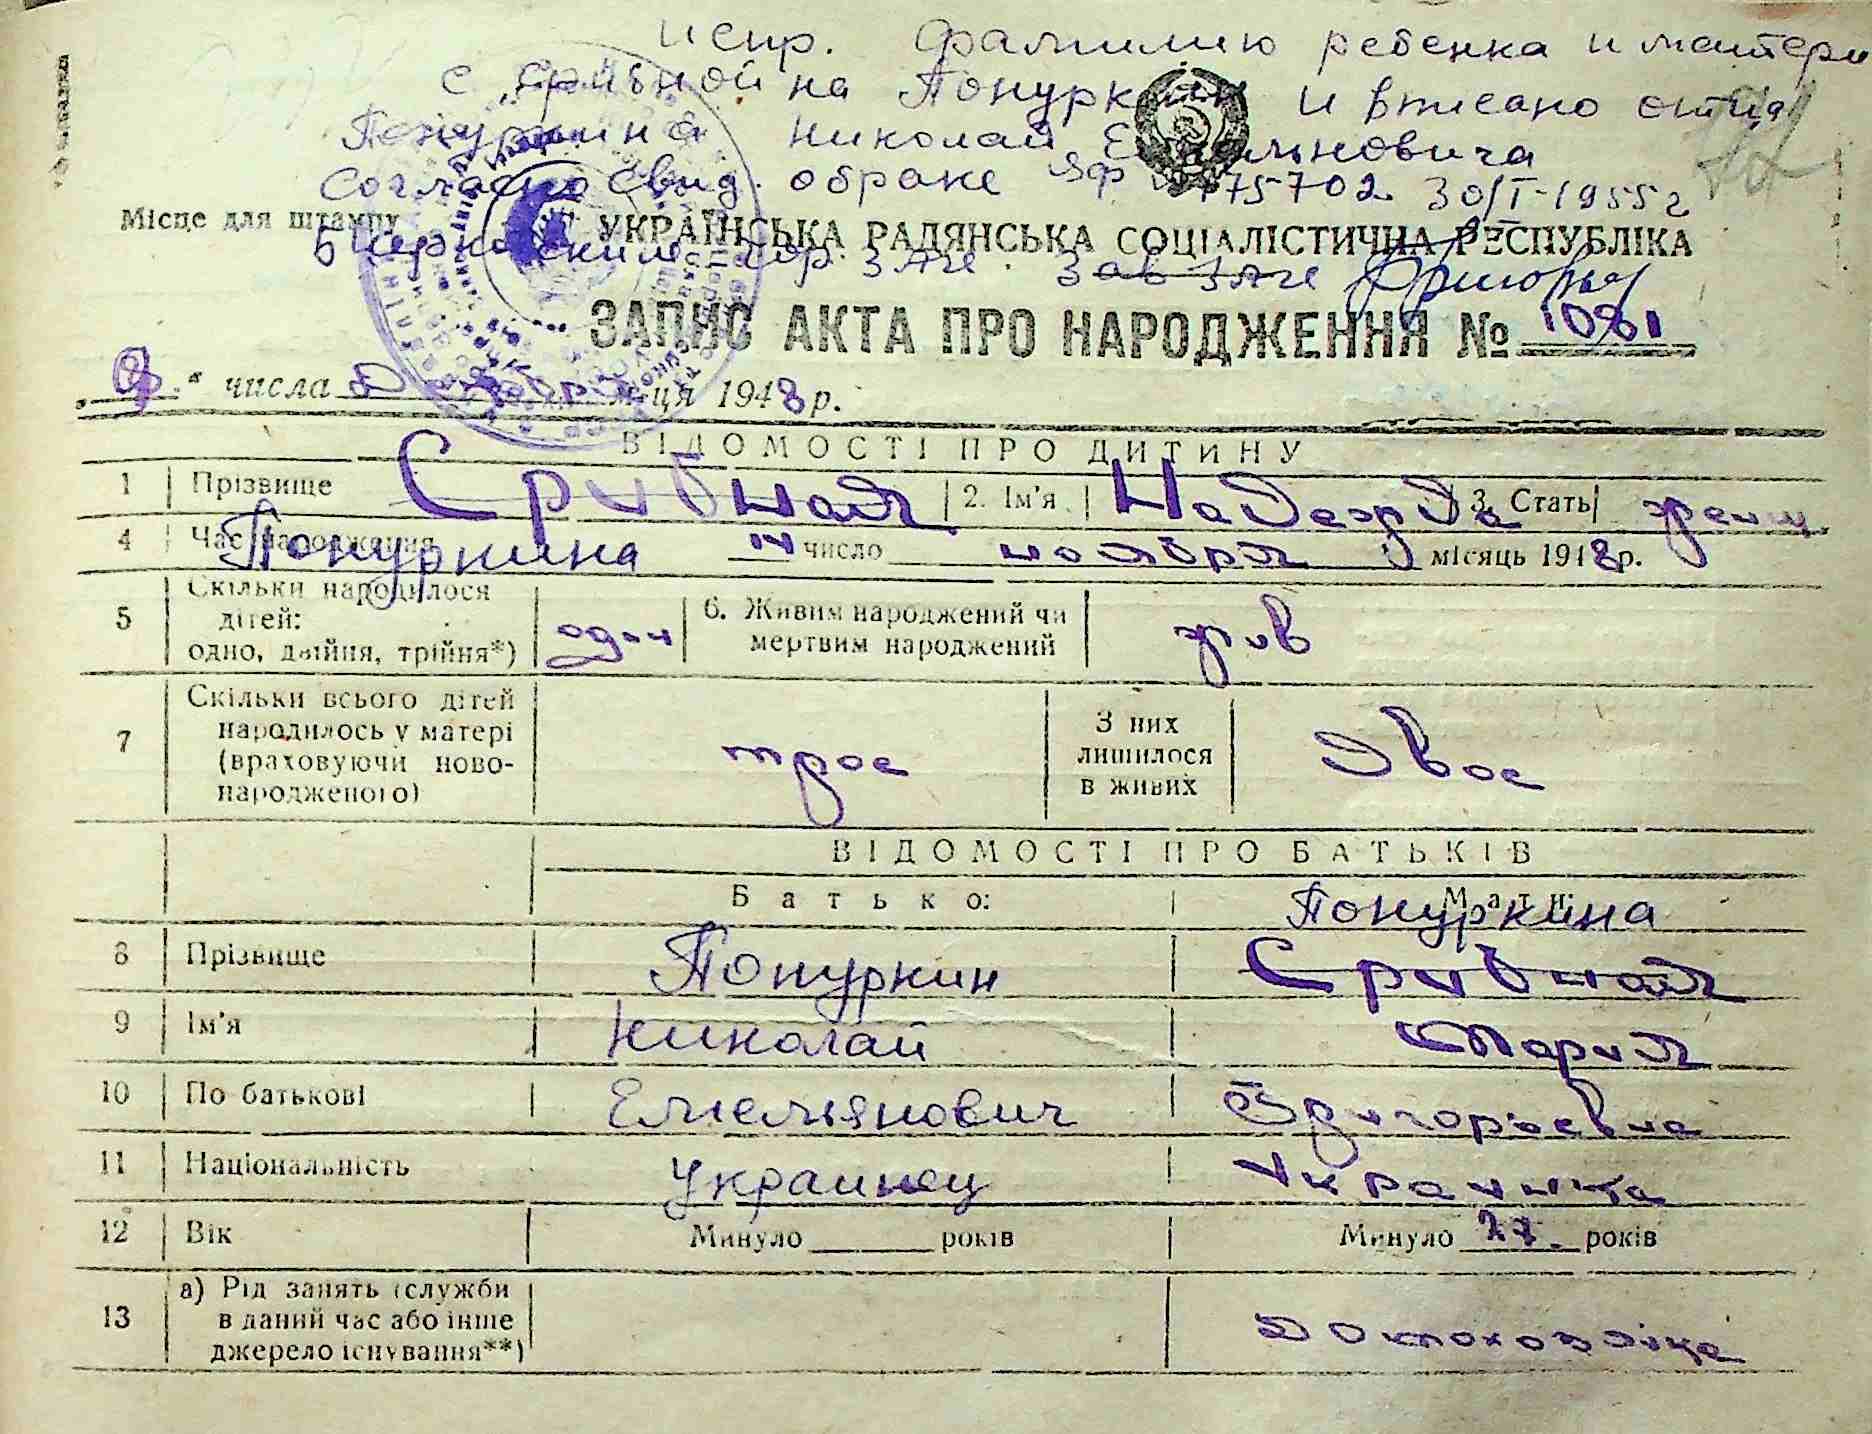 испр. фамилию ребенка и матери
с Срибной на Понуркин и вписано отца
Понуркина Николай Емельновича
Согласно свид. о браке ЯФ 475702 30/I-1955г
Місце для штампу УКРАЇНСЬКА РАДЯНСЬКА СОЦІАЛІСТИЧНА РЕСПУБЛІКА
гор. ЗАГС. Зав ЗАГС
ЗАПИС АКТА ПРО НАРОДЖЕННЯ № 1081
„9.“ числа Декабря м-ця 1948 р.
ВІДОМОСТІ ПРО ДИТИНУ
1 Прізвище Срибная 2. Ім'я Надежда 3. Стать женщ.
4 Час народження Понуркина IV число ноября місяць 1948 р.
5 Скільки народилося дітей: одно, двійня, трійня*) один 6. Живим народжений чи мертвим народжений жив
7 Скільки всього дітей народилось у матері (враховуючи новонародженого) трое З них лишилося в живих двое
ВІДОМОСТІ ПРО БАТЬКІВ
Батько: Мати:
Понуркина
8 Прізвище Понуркин Срибная
9 Ім'я Николай Мария
10 По батькові Емельянович Григорьевна
11 Національність Украинец Украинка
12 Вік Минуло років Минуло 27. років
13 а) Рід занять (служби
в даний час або інше
джерело існування**) Домохозяйка